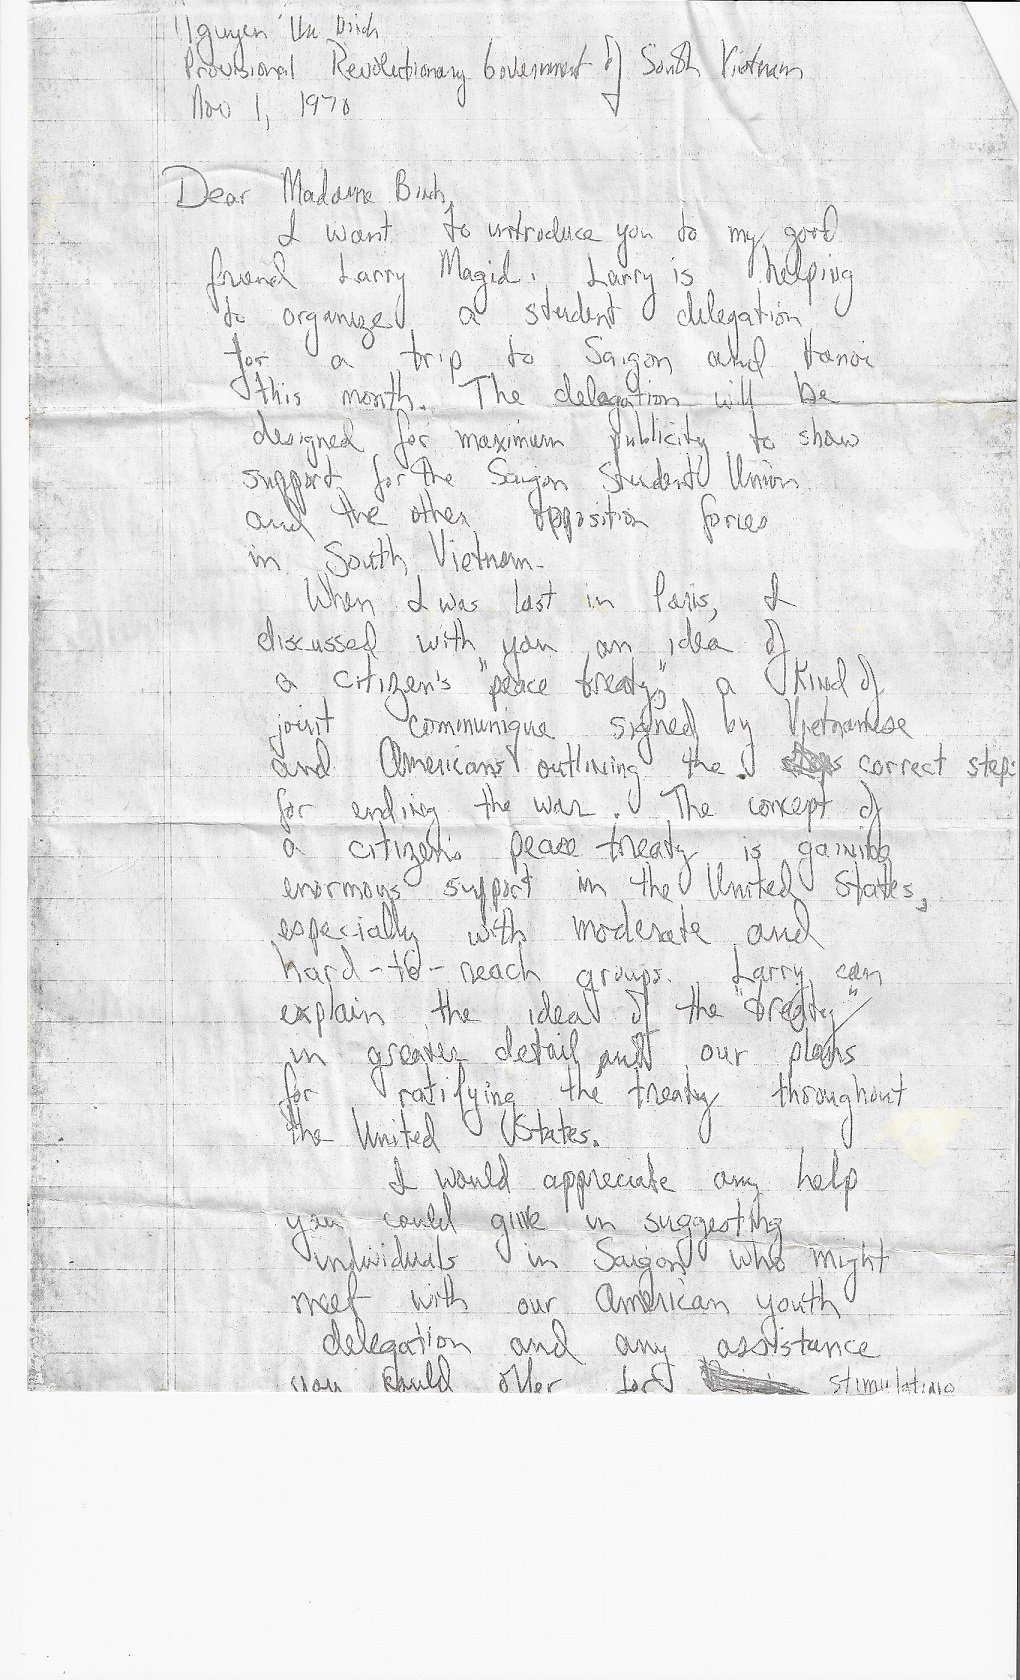 Nguyen Binh
Provisional Revolutionary Government of South Vietnam
Nov 1, 1970
Dear Madame Binh,
I want to introduce you to my good
friend Larry Magid. Larry is helping
to organize a student delegation
for a trip to Saigon and Hanoi
this month. The delegation will be
designed for maximum publicity to show
support for the Saigon Student Union
and the other opposition forces
in South Vietnam.
When I was last in Paris, I
discussed with you an idea of
a citizen's "peace treaty," a kind of
joint communique signed by Vietnamese
and Americans outlining the correct steps
for ending the war. The concept of
a citizen's peace treaty is gaining
enormous support in the United States,
especially with moderate and
hard-to-reach groups. Larry can
explain the idea of the "treaty"
in greater detail and our plans
for ratifying the treaty throughout
the United States.
I would appreciate any help
you could give in suggesting
individuals in Saigon who might
meet with our American youth
delegation and any assistance
you could offer for stimulating